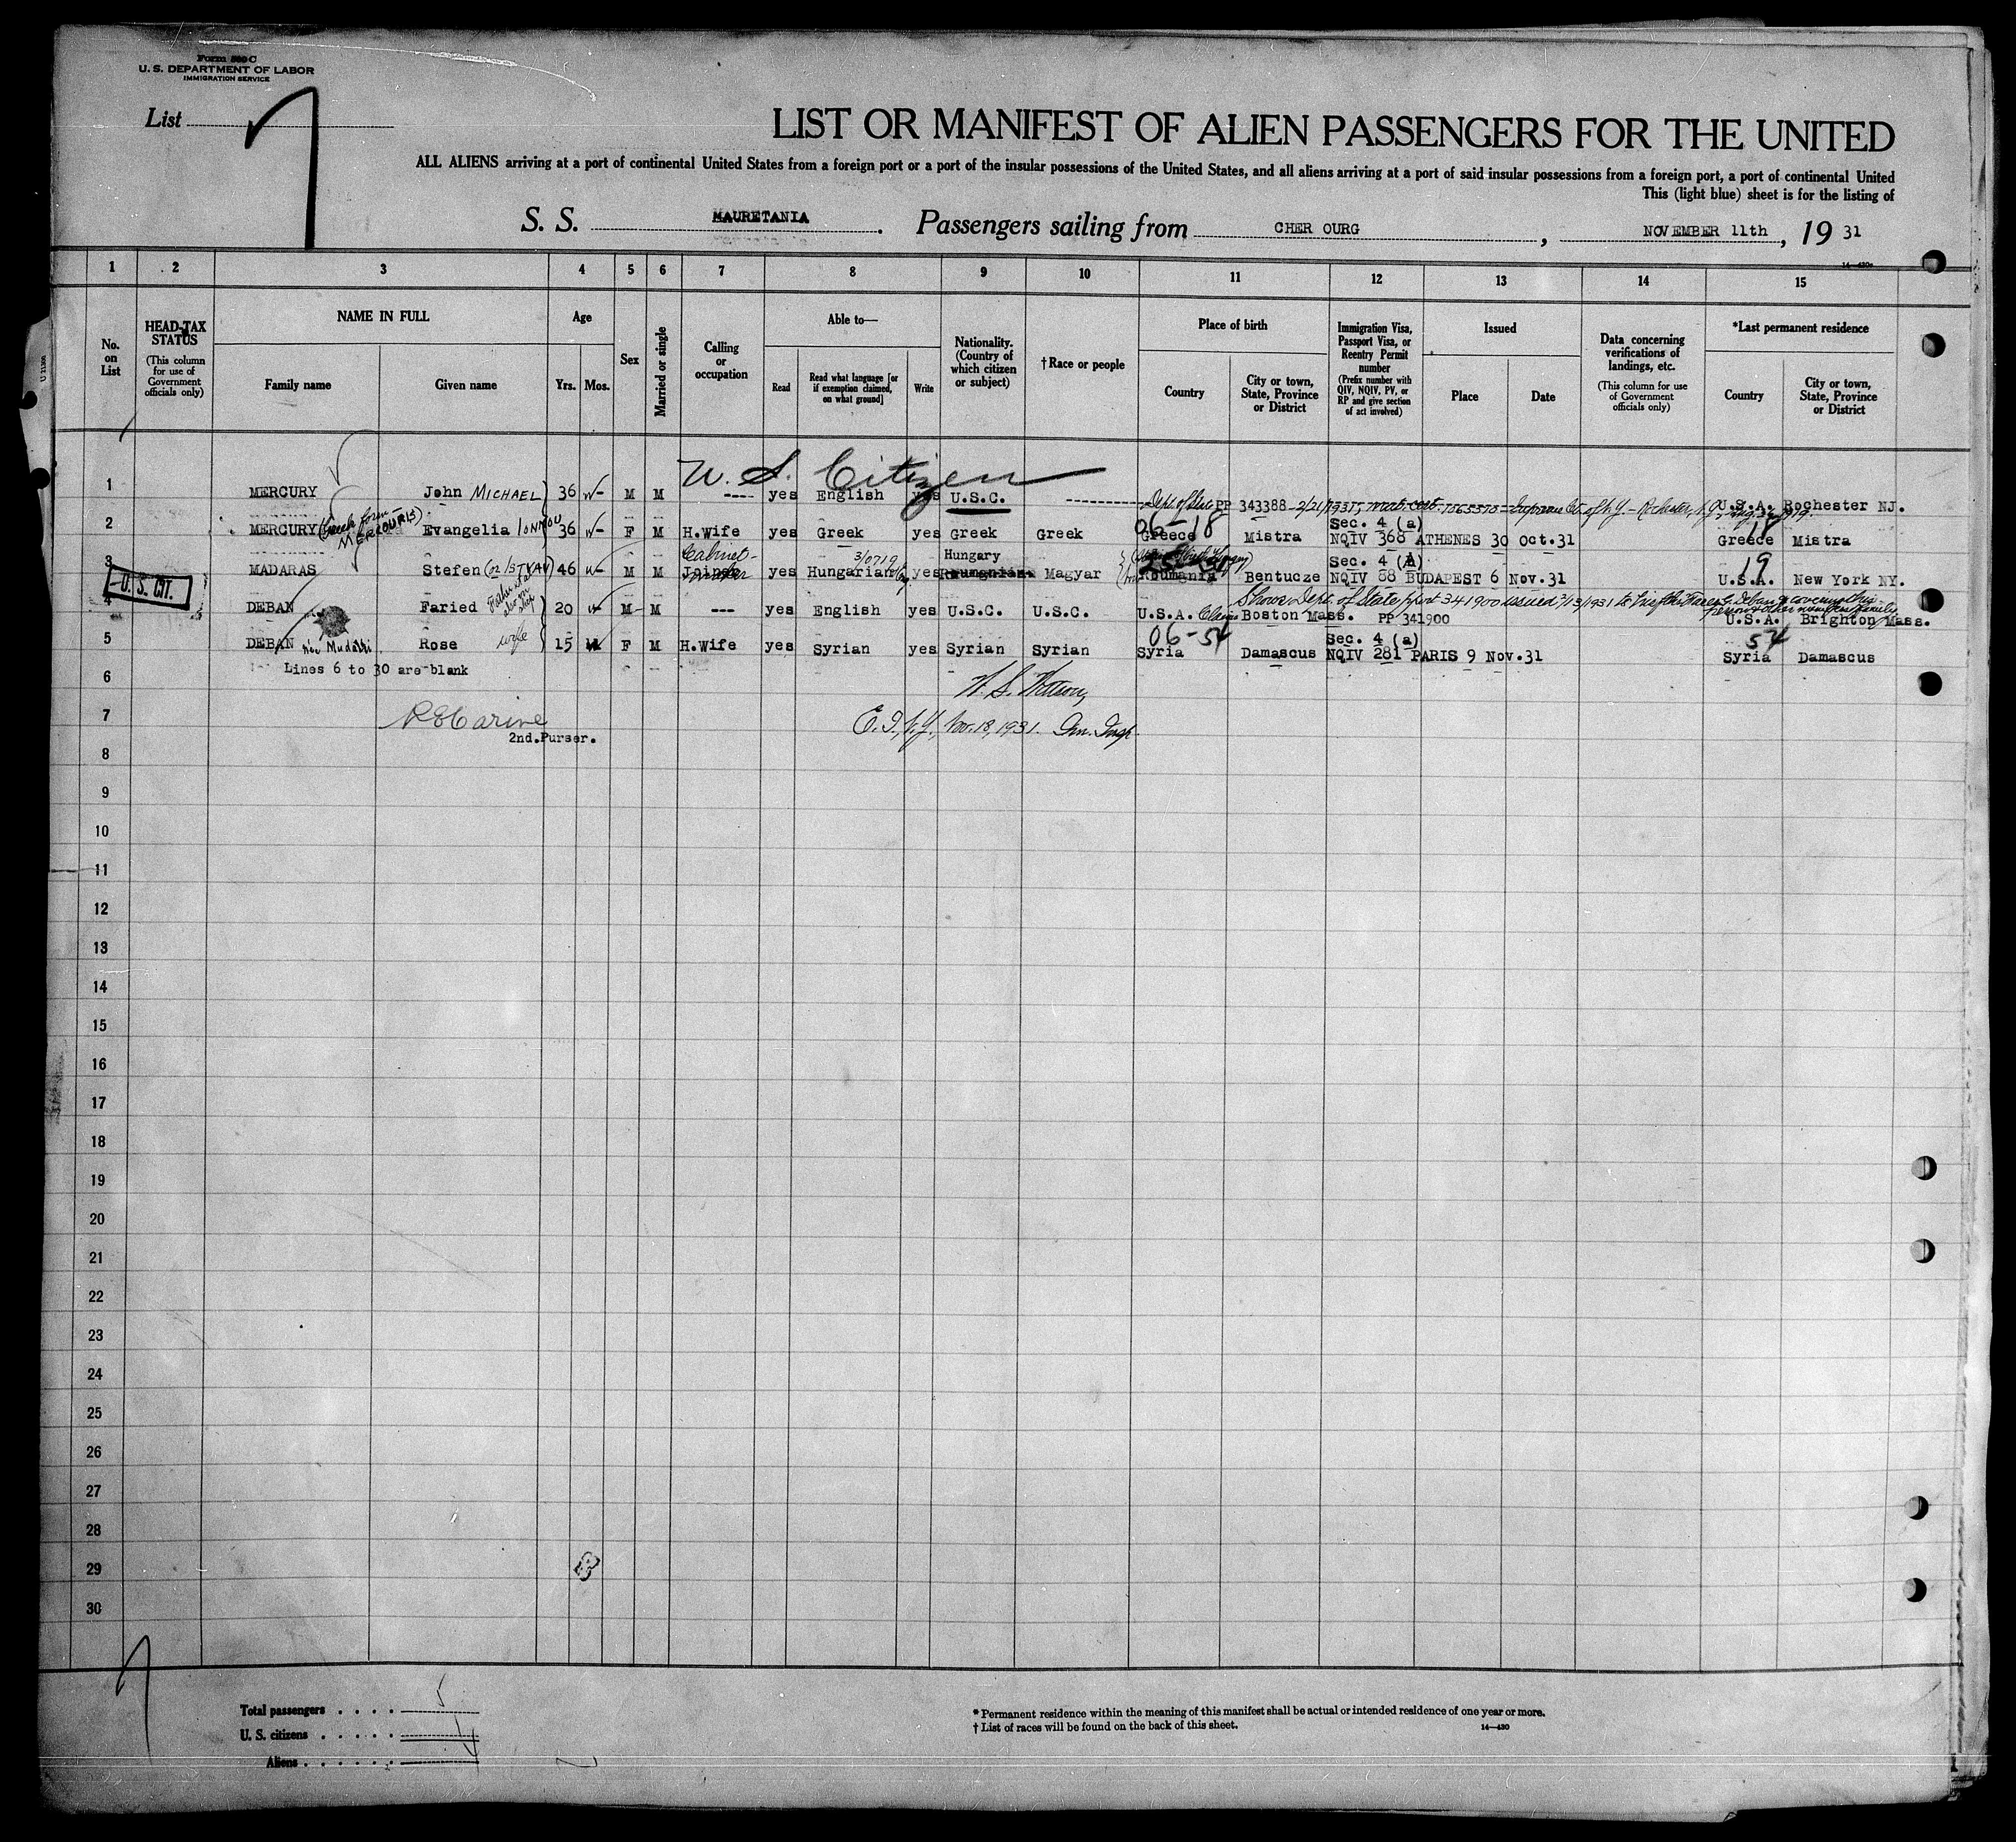 Form 500 C
U. S. DEPARTMENT OF LABOR
IMMIGRATION SERVICE
List 7
LIST OR MANIFEST OF ALIEN PASSENGERS FOR THE UNITED
ALL ALIENS arriving at a port of continental United States from a foreign port or a port of the insular possessions of the United States, and all aliens arriving at a port of said insular possessions from a foreign port, a port of continental United
This (light blue) sheet is for the listing of
S. S. MAURETANIA. Passengers sailing from CHER OURG, NOVEMBER 11th, 19 31
1 2 3 4 5 6 7 8 9 10 11 12 13 14 15
No. on List
HEAD-TAX STATUS
(This column for use of Government officials only)
NAME IN FULL
Family name
Given name
Age
Yrs. Mos.
Sex
Married or single
Calling or occupation
Able to—
Read
Read what language [or if exemption claimed, on what ground]
Write
Nationality. (Country of which citizen or subject)
†Race or people
Place of birth
Country
City or town, State, Province or District
Immigration Visa, Passport Visa, or Reentry Permit number
(Prefix number with QIV, NQIV, PV, or RP and give section of act involved)
Issued
Place
Date
Data concerning verifications of landings, etc.
(This column for use of Government officials only)
*Last permanent residence
Country
City or town, State, Province or District
U. S. Citizen
1 MERCURY John MICHAEL 36 M M ---- yes English yes U.S.C. Dept. of State PP 343388 U.S.A. Rochester NJ.
2 MERCURY (Greek form - MERCOURIS) Evangelia 36 F M H.Wife yes Greek yes Greek Greek 06-18 Greece Mistra Sec. 4 (a) NQIV 368 ATHENES 30 Oct.31 18 Greece Mistra
3 MADARAS Stefen (or ISTVAN) 46 M M Cabinet- Joinder yes Hungarian yes Hungary Roumanian Magyar Roumania Bentucze Sec. 4 (A) NQIV 88 BUDAPEST 6 Nov.31 19 U.S.A. New York NY.
U. S. CIT.
4 DEBAN Faried 20 M M --- yes English yes U.S.C. U.S.C. U.S.A. Boston Mass. Shows Dept. of State 341900 issued PP 341900 U.S.A. Brighton Mass.
5 DEBAN Rose wife 15 F M H.Wife yes Syrian yes Syrian Syrian 06-54 Syria Damascus Sec. 4 (a) NQIV 281 PARIS 9 Nov.31 54 Syria Damascus
Lines 6 to 30 are blank
6
7
2nd.Purser.
Nov. 18, 1931. Im. Insp.
8
9
10
11
12
13
14
15
16
17
18
19
20
21
22
23
24
25
26
27
28
29
30
Total passengers . . . . 5
U. S. citizens . . . . .
Aliens . . . . . .
* Permanent residence within the meaning of this manifest shall be actual or intended residence of one year or more.
† List of races will be found on the back of this sheet.
14—430